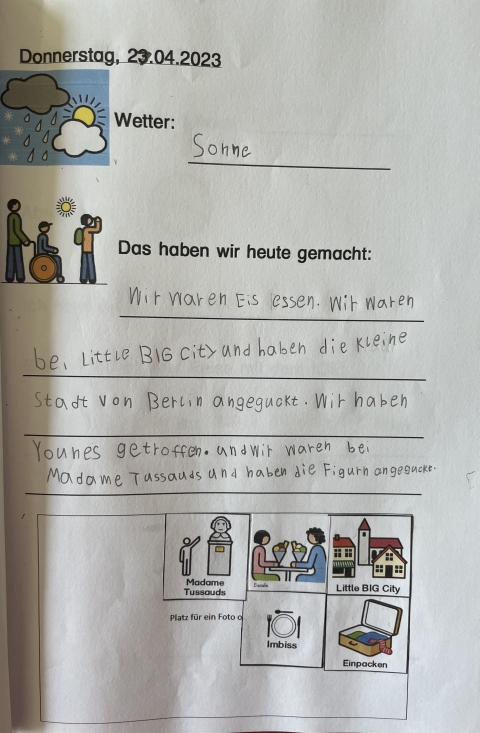 Donnerstag, 23.04.2023
Wetter:
Sonne
Das haben wir heute gemacht:
Wir waren Eis essen. Wir waren
bei Little BIG City und haben die kleine
Stadt von Berlin angeguckt. Wir haben
Younes getroffen. und Wir waren bei
Madame Tussauds und haben die Figurn angeguckt.
Madame
Tussauds
Little BIG City
Platz für ein Foto o
Imbiss
Einpacken